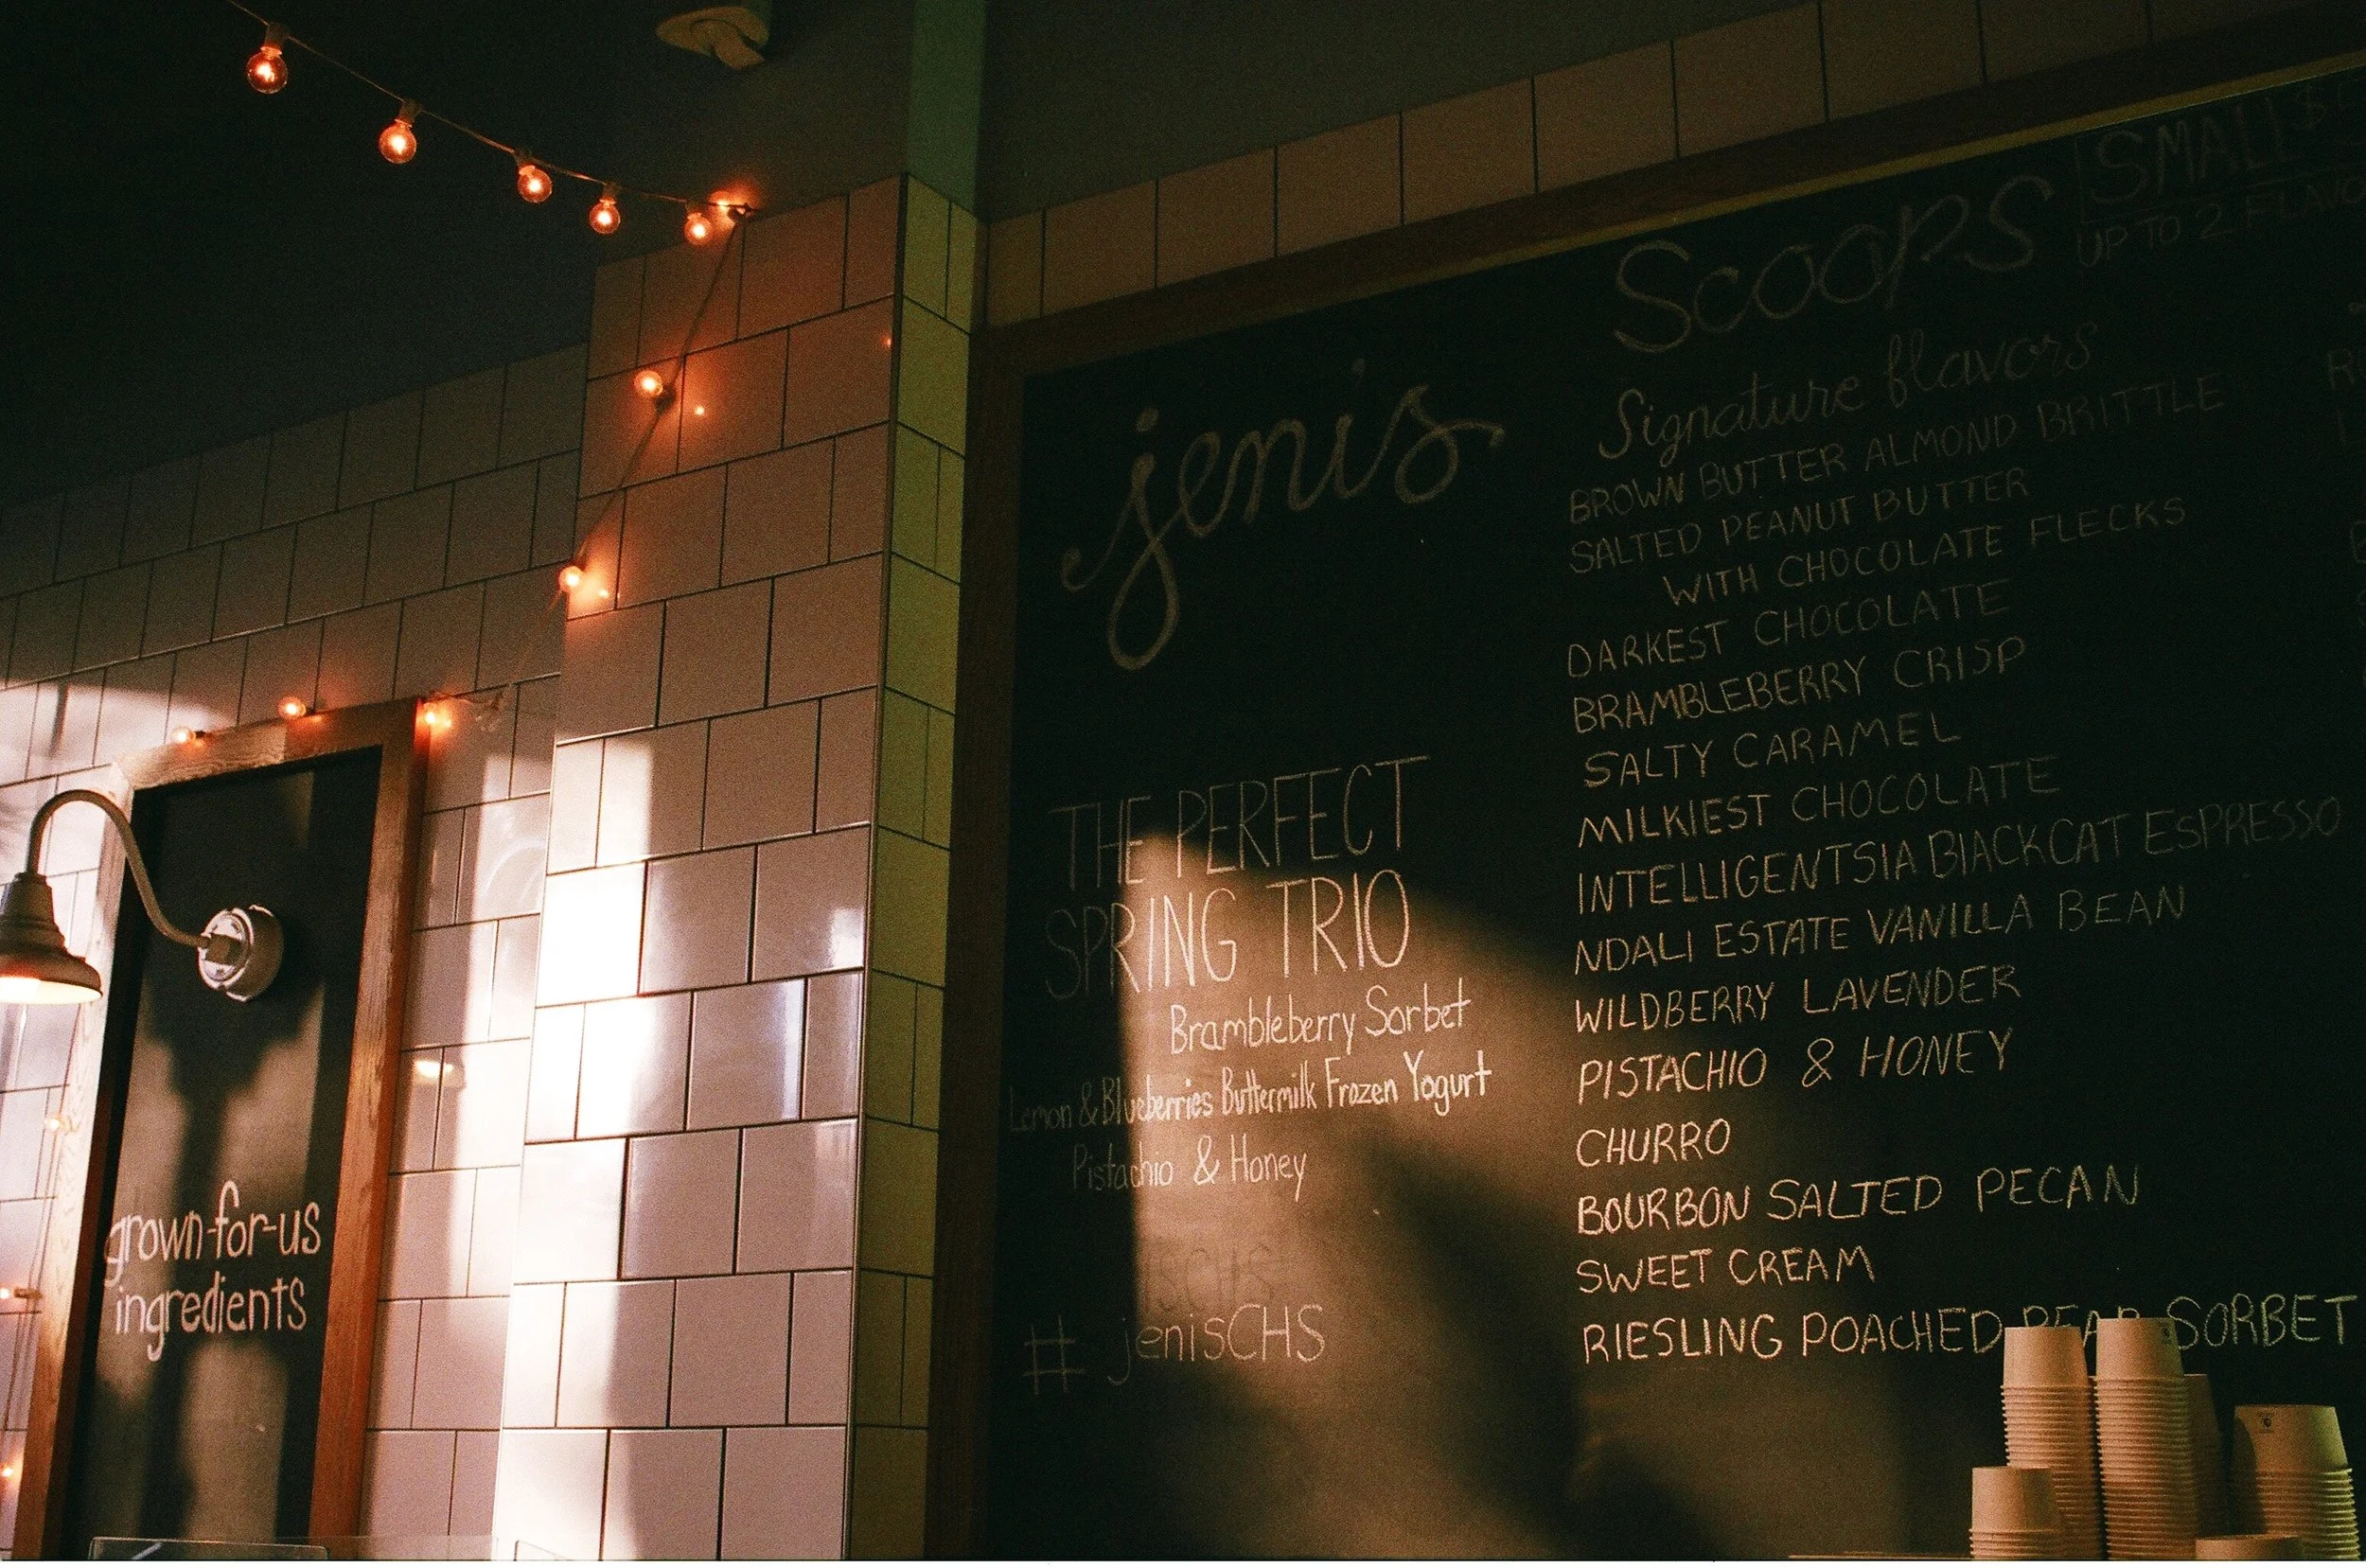 grown-for-us
ingredients
jenis
THE PERFECT
SPRING TRIO
Brambleberry Sorbet
Lemon & Blueberries Buttermilk Frozen Yogurt
Pistachio & Honey
# jenisCHS
Scoops
SMALL $
UP TO 2
Signature flavors
BROWN BUTTER ALMOND BRITTLE
SALTED PEANUT BUTTER
WITH CHOCOLATE FLECKS
DARKEST CHOCOLATE
BRAMBLEBERRY CRISP
SALTY CARAMEL
MILKIEST CHOCOLATE
INTELLIGENTSIA BLACK CAT ESPRESSO
NDALI ESTATE VANILLA BEAN
WILDBERRY LAVENDER
PISTACHIO & HONEY
CHURRO
BOURBON SALTED PECAN
SWEET CREAM
RIESLING POACHED PEAR SORBET